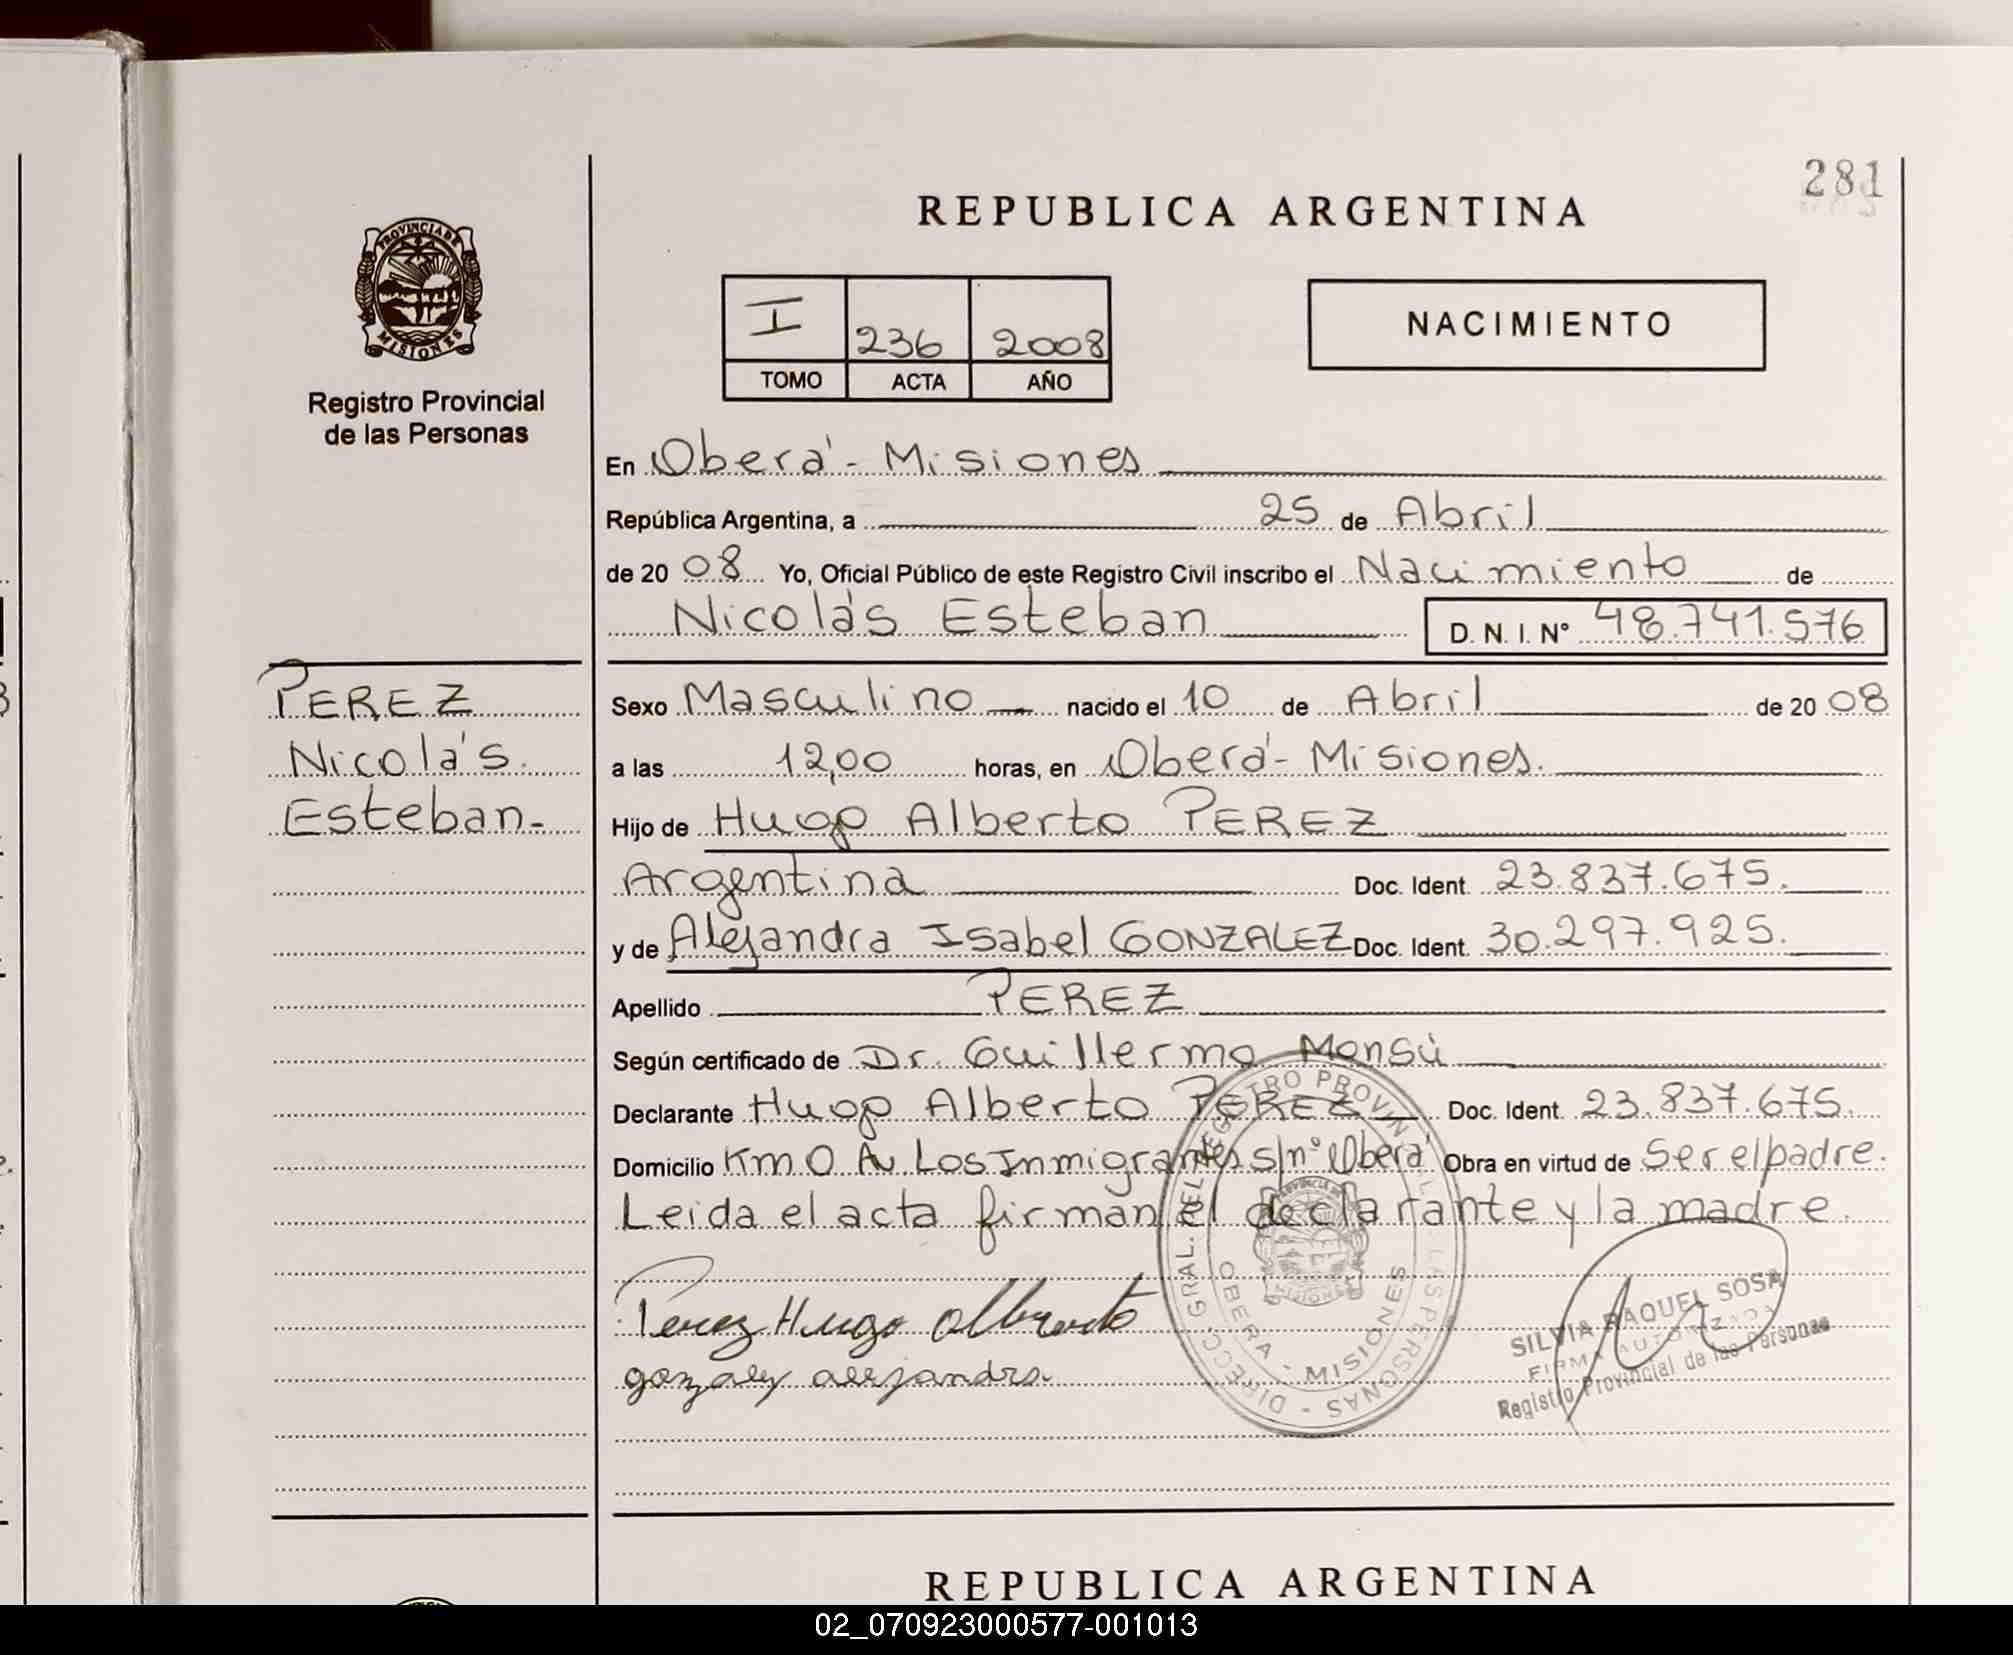 281
REPUBLICA ARGENTINA
PROVINCIA DE
MISIONES
Registro Provincial
de las Personas
I 236 2008
TOMO ACTA AÑO
NACIMIENTO
En Oberá - Misiones
República Argentina, a 25 de Abril
de 20 08 Yo, Oficial Público de este Registro Civil inscribo el Nacimiento de
Nicolás Esteban D. N. I. Nº 48.741.576
PEREZ
Nicolás
Esteban-
Sexo Masculino nacido el 10 de Abril de 20 08
a las 12,00 horas, en Oberá - Misiones.
Hijo de Hugo Alberto PEREZ
Argentina Doc. Ident. 23.837.675.
y de Alejandra Isabel GONZALEZ Doc. Ident. 30.297.925.
Apellido PEREZ
Según certificado de Dr. Guillermo Monsú
Declarante Hugo Alberto PEREZ Doc. Ident. 23.837.675.
Domicilio Km 0 Av Los Inmigrantes s/nº Oberá Obra en virtud de Ser el padre.
Leida el acta firman el declarante y la madre.
Perez Hugo Alberto
gonzalez alejandra
DIRECC. GRAL. DEL REGISTRO PROVINCIAL DE LAS PERSONAS -
OBERA - MISIONES
SILVIA RAQUEL SOSA
FIRMA AUTORIZADA
Registro Provincial de las Personas
REPUBLICA ARGENTINA
02_070923000577-001013